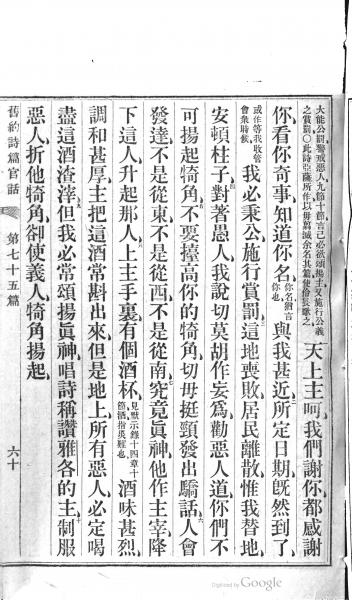 大能公罰警戒惡人九節十節言己必欲頌揚主又施行公義
之賞罰○此詩亞薩所作以毋篇滅余名其篇使伶長歌之
天上主呵我們謝你都感謝
你看你奇事知道你名你名猶言你也與我甚近所定日期旣然到了
或作等我收管會衆時候我必秉公施行賞罰這地喪敗居民離散惟我替地
安頓柱子對著愚人我說切莫胡作妄爲勸惡人道你們不
可揚起犄角不要擡高你的犄角切毋挺頸發出驕話人會
發達不是從東不是從西不是從南究竟眞神他作主宰降
下這人升起那人上主手裏有個酒杯見默示錄十四章十節酒指災難也酒味甚烈
調和甚厚主把這酒常斟出來但是地上所有惡人必定喝
盡這酒渣滓但我必常頌揚眞神唱詩稱讚雅各的主制服
惡人折他犄角卻使義人犄角揚起
舊約詩篇官話 第七十五篇 六十
Digitized by Google